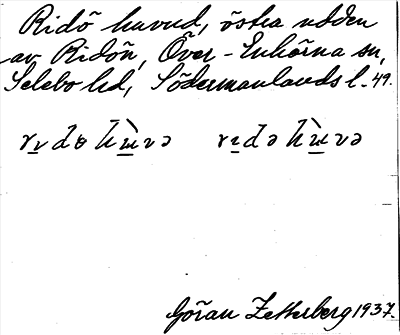 Ridö huvud, östra udden
av Ridön, Över-Enhörna sn,
Selebo hd, Södermanlands l. 49.
Göran Zetterberg 1937.